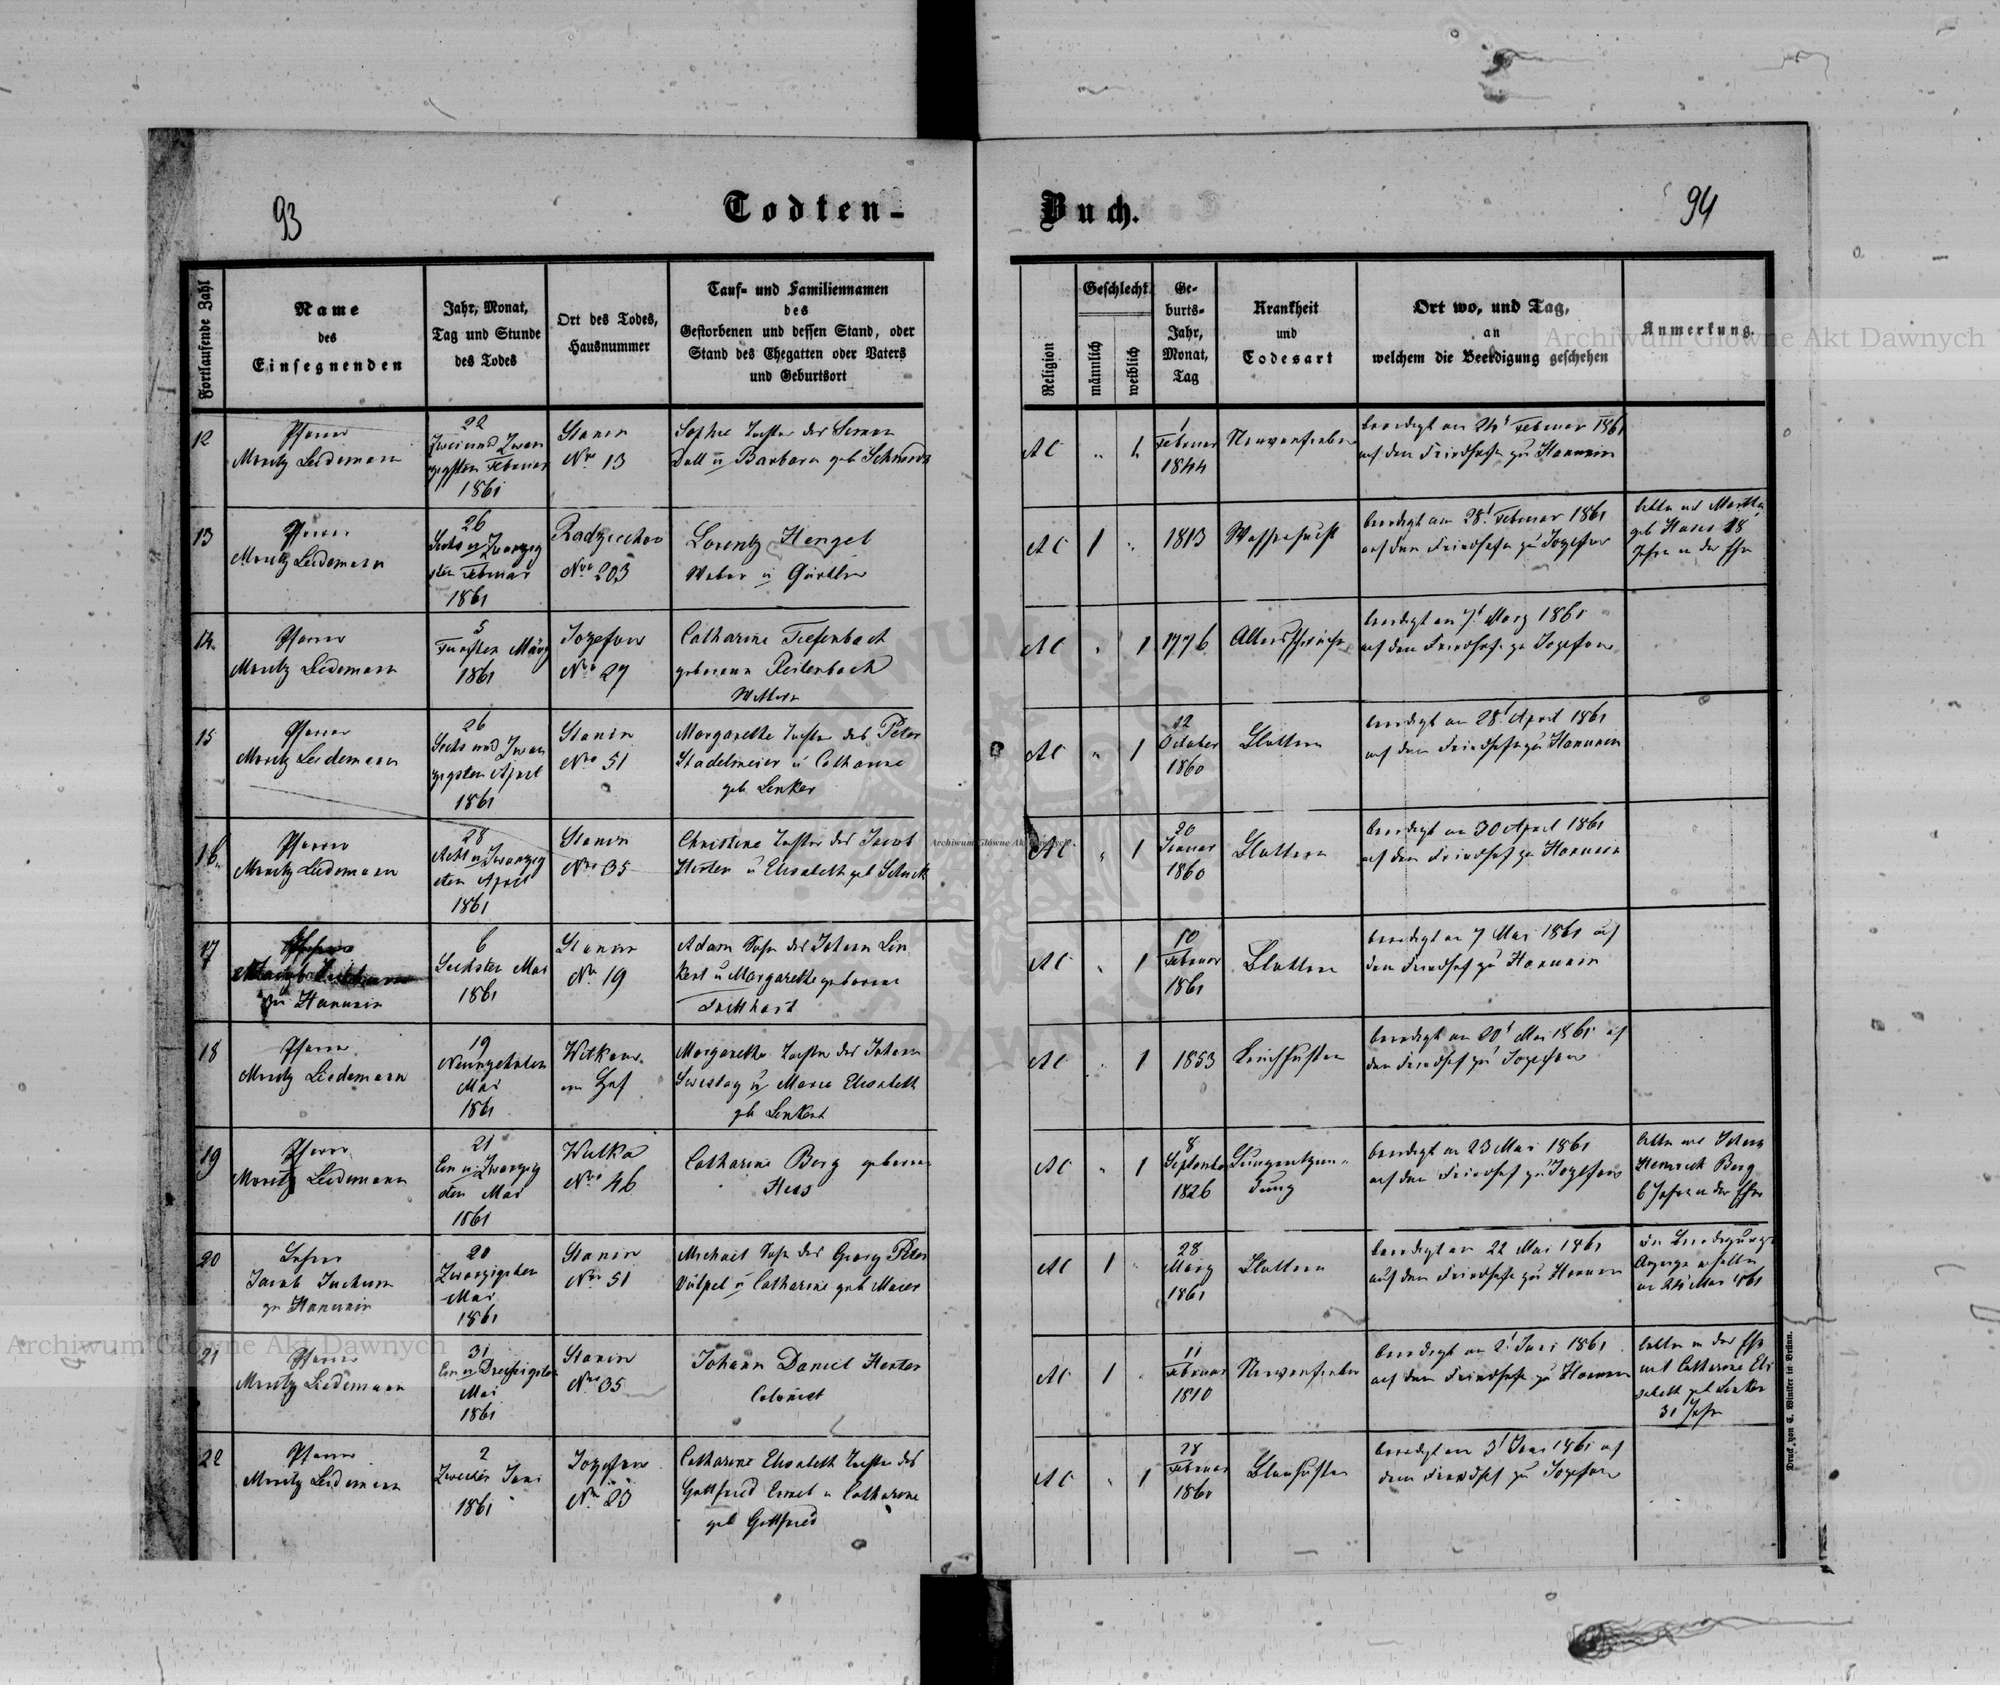 93
Todten-
Buch.
94
Fortlaufende Zahl
Name
des
Einsegnenden
Jahr, Monat,
Tag und Stunde
des Todes
Ort des Todes,
Hausnummer
Tauf- und Familiennamen
des
Gestorbenen und dessen Stand, oder
Stand des Ehegatten oder Vaters
und Geburtsort
Religion
Geschlecht
männlich
weiblich
Ge-
burts-
Jahr,
Monat,
Tag
Krankheit
und
Todesart
Ort wo, und Tag,
an
welchem die Beerdigung geschehen
Anmerkung.
12
Pfarrer
Moritz Leidemann
22
Zwei und Zwan
zigsten Februar
1861
Stanin
Nro 13
Sophie Tochter des Simon
Doll u Barbara geb
AC
1
1
Februar
1844
Nervenfieber
beerdigt am 24t Februar 1861
auf dem Friedhofe zu Hanunin
13
Pfarrer
Moritz Leidemann
26
Sechs u Zwanzig
sten Februar
1861
Radziechow
Nro 203
Lorentz Hengel
Weber u Gürtler
AC
1
1813
Wassersucht
beerdigt am 28t Februar 1861
auf dem Friedhofe zu Jozefow
lebte mit Martha
geb 18
Jahre in der Ehe
14.
Pfarrer
Moritz Leidemann
5
Fünften März
1861
Jozefow
Nro 27
Catharine Tiefenbach
geborene Reitenbach
Wittwe
AC
1
1776
Altersschwäche
beerdigt am 7t März 1861
auf dem Friedhofe zu Jozefow
15
Pfarrer
Moritz Leidemann
26
Sechs und Zwan
zigsten April
1861
Stanin
Nro 51
Margarethe Tochter des Peter
Stadelmeier u Catharine
geb Lenker
AC
1
12
October
1860
Blattern
beerdigt am 28t April 1861
auf dem Friedhofe zu Hanunin
16.
Pfarrer
Moritz Leidemann
28
Acht u Zwanzig
sten April
1861
Stanin
Nro 35
Christine Tochter des Jacob
Herter u Elisabeth geb Schuck
AC
1
20
Januar
1860
Blattern
beerdigt am 30 April 1861
auf dem Friedhof zu Hanunin
17
zu Hanunin
6
Sechster Mai
1861
Stanin
Nr 19
Adam Sohn des Johann Lin
kert u Margarethe geborene
AC
1
10
Februar
1861
Blattern
beerdigt am 7 Mai 1861 auf
dem Friedhof zu Hanunin
18
Pfarrer
Moritz Leidemann
19
Neunzehnten
Mai
1861
Witkow
am Hof
Margaretha Tochter des Johann
u Marie Elisabeth
geb Lenkert
AC
1
1853
Keuchhusten
beerdigt am 20t Mai 1861 auf
dem Friedhof zu Jozefow
19
Pfarrer
Moritz Leidemann
21
Ein u Zwanzig
sten Mai
1861
Wulka
Nro 46
Catharine Berg geborene
Hess
AC
1
8
September
1826
Lungenentzün-
dung
beerdigt am 23 Mai 1861
auf dem Friedhof zu Jozefow
lebte mit Johann
Heinrich Berg
6 Jahre in der Ehe
20
Lehrer
Jacob Jachum
zu Hanunin
20
Zwanzigsten
Mai
1861
Stanin
Nro 51
Michael Sohn des Georg Peter
Völpel u Catharine geb Maier
AC
1
28
März
1861
Blattern
beerdigt am 22 Mai 1861
auf dem Friedhofe zu Hanunin
Die Beerdigungs
Anzeige erhalten
am 24t Mai 1861
21
Pfarrer
Moritz Leidemann
31
Ein u Dreißigsten
Mai
1861
Stanin
Nro 35
Johann Daniel Herter
Colonist
AC
1
11
Februar
1810
Nervenfieber
beerdigt am 2t Juni 1861
auf dem Friedhofe zu Hanunin
lebte in der Ehe
mit Catharine Eli
sabeth geb Lenker
31 Jahre
22
Pfarrer
Moritz Leidemann
2
Zweiten Juni
1861
Jozefow
Nr. 23
Catharine Elisabeth Tochter des
Gottfried u Catharine
geb Gottfried
AC
1
28
Februar
1860
beerdigt am 3t Juni 1861 auf
dem Friedhof zu Jozefow
Druck von C. Winiker in Brünn.
Archiwum Główne Akt Dawnych
Archiwum Główne Akt Dawnych
Archiwum Główne Akt Dawnych